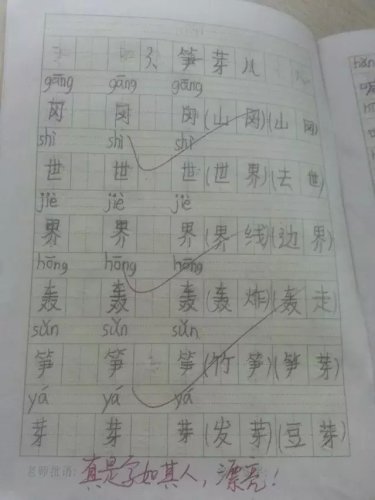 笋 芽 儿
gāng gāng gāng
冈 冈 冈(山 冈)(山 冈)
shì shì shì
世 世 世(世 界)(去 世)
jiè jiè jiè
界 界 界(界 线)(边 界)
hōng hōng hōng
轰 轰 轰(轰 炸)(轰 走)
sǔn sǔn sǔn
笋 笋 笋(竹 笋)(笋 芽)
yá yá yá
芽 芽 芽(发 芽)(豆 芽)
老师批语:真是字如其人,漂亮!